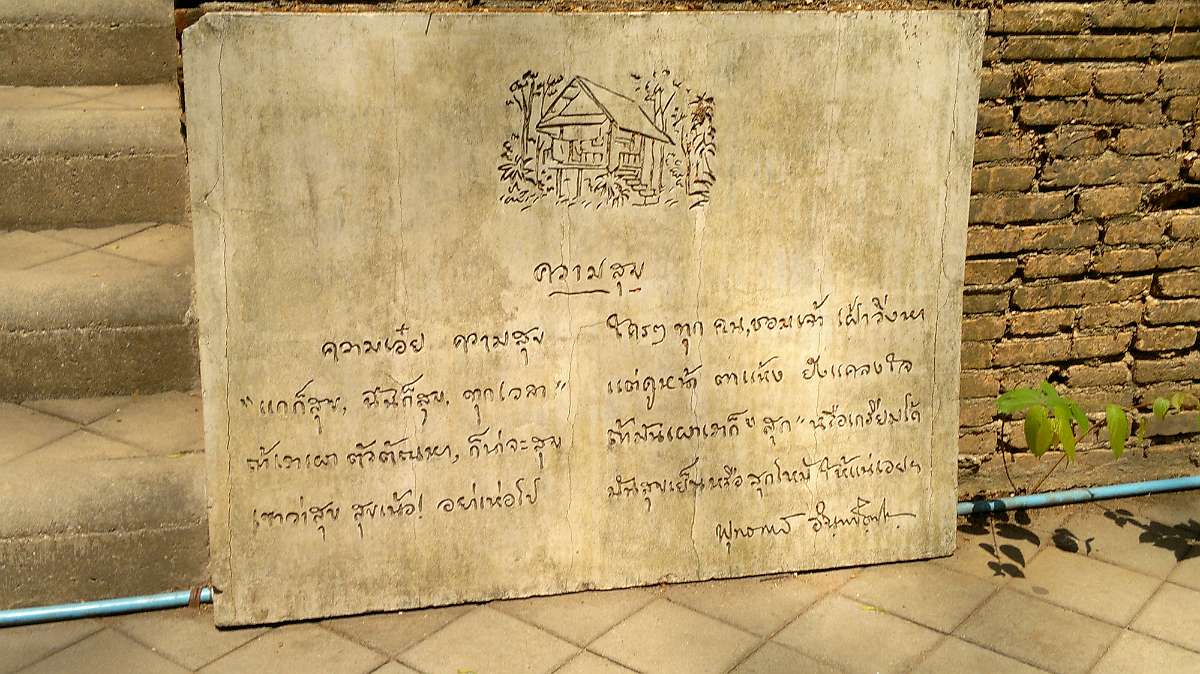 ความสุข
ความเอ๋ย ความสุข ใครๆ ทุกคน, ชอบเจ้า เฝ้าวิ่งหา
"แกก็สุข, ฉันก็สุข, ทุกเวลา" แต่ดูหน้า ตาแห้ง ยังแคลงใจ
ถ้าเราเผา ตัวตัณหา, ก็น่าจะสุข ถ้ามันเผาเราก็ "สุก" หรือเกรียมได้
เขาว่าสุข สุขเน้อ! อย่าเห่อไป มันสุขเย็นหรือสุกไหม้ ให้แน่เอยฯ
พุทธทาส อินทปัญโญ